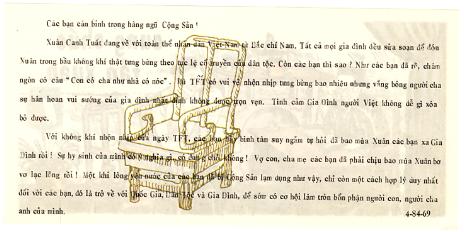 Các bạn cán binh trong hàng ngũ Cộng Sản !
Xuân Canh Tuất đang về với toàn thể nhân dân Việt-Nam từ Bắc chí Nam. Tất cả mọi gia đình đều sửa soạn để đón
Xuân trong bầu không khí thật tưng bừng theo tục lệ cổ truyền của dân tộc. Còn các bạn thì sao ? Như các bạn đã rõ, châm
ngôn có câu "Con có cha như nhà có nóc". Dù TFT có vui vẻ nhộn nhịp tưng bừng bao nhiêu nhưng vắng bóng người cha
sự hân hoan vui sướng của gia đình nhất định không được trọn vẹn. Tình cảm Gia Đình người Việt không dễ gì xóa
bỏ được.
Với không khí nhộn nhịp của ngày TFT, các bạn hãy bình tâm suy ngẫm tự hỏi đã bao mùa Xuân các bạn xa Gia
Đình rồi ! Sự hy sinh của mình có ý nghĩa gì, có đúng chỗ không ! Vợ con, cha mẹ các bạn đã phải chịu bao mùa Xuân bơ
vơ lạc lõng rồi ! Một khi lòng yêu nước của các bạn đã bị Cộng Sản lạm dụng như vậy, chỉ còn một cách hợp lý duy nhất
đối với các bạn, đó là trở về với Quốc Gia, Dân Tộc và Gia Đình, để sớm có cơ hội làm tròn bổn phận người con, người cha
anh của mình.
4-84-69